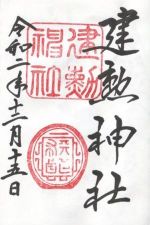 建勲神社
建勳
神社
令和二年十二月十五日